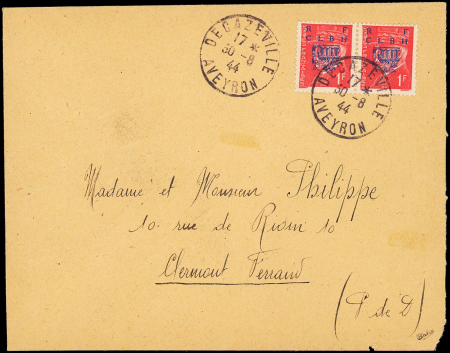 DECAZEVILLE
17 *
30-8
44
AVEYRON
R F
C L B H
1F
R F
C L B H
1F
DECAZEVILLE
17 *
30-8
44
AVEYRON
Madame et Monsieur Philippe
10 rue de Riom 10
Clermont Ferrand
(P de D)